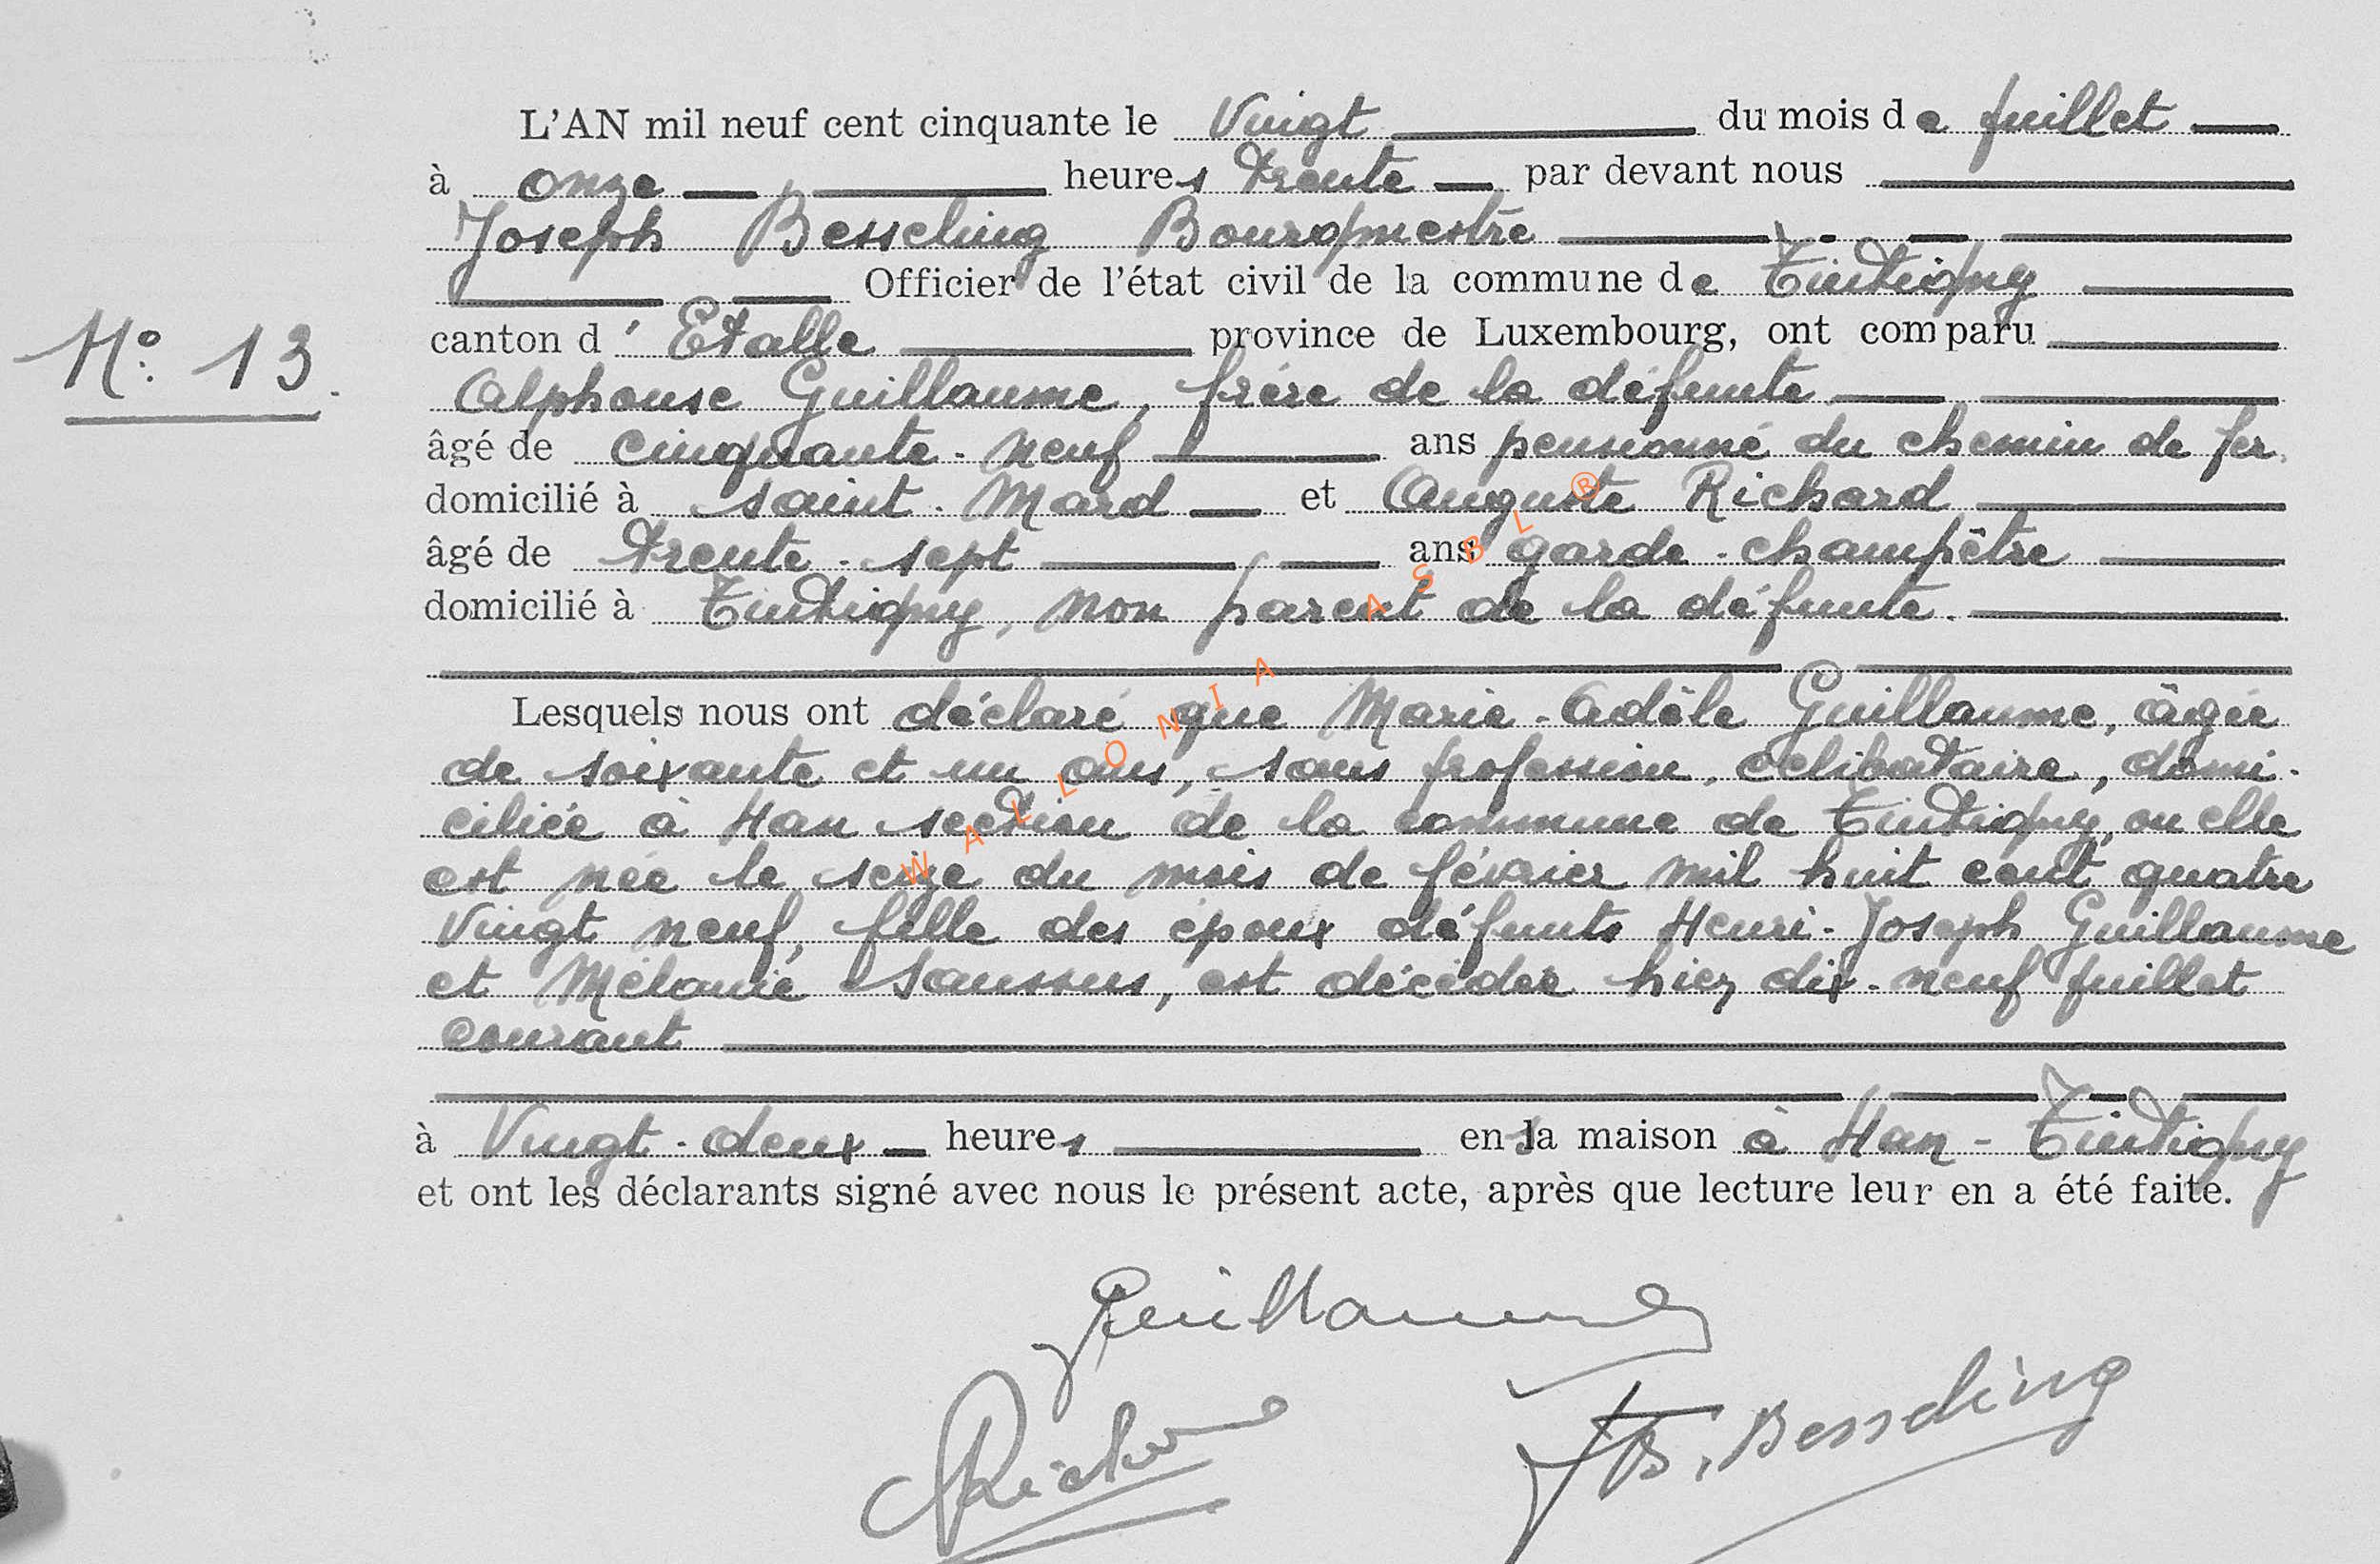 L'AN mil neuf cent cinquante le Vingt du mois de juillet
à onze heures trente par devant nous
Joseph Bessling Bourgmestre
Officier de l'état civil de la commune de Tintigny
N° 13.
canton d' Etalle province de Luxembourg, ont comparu
Alphonse Guillaume, frère de la défunte
âgé de cinquante-neuf ans pensionné du chemin de fer.
domicilié à Saint-Mard et Auguste Richard
âgé de trente-sept ans garde-champêtre
domicilié à Tintigny, non parent de la défunte.
Lesquels nous ont déclaré que Marie-Adèle Guillaume, âgée
de soixante et un ans, sans profession, célibataire, domi-
ciliée à Han section de la commune de Tintigny, ou elle
est née le seize du mois de février mil huit cent quatre
vingt neuf, fille des époux défunts Henri-Joseph Guillaume
et Mélanie Saussus, est décédée hier dix-neuf juillet
courant
à Vingt-deux heures en sa maison à Han-Tintigny
et ont les déclarants signé avec nous le présent acte, après que lecture leur en a été faite.
Guillaume
Richard
Bessling
WALLONIA ASBL ®